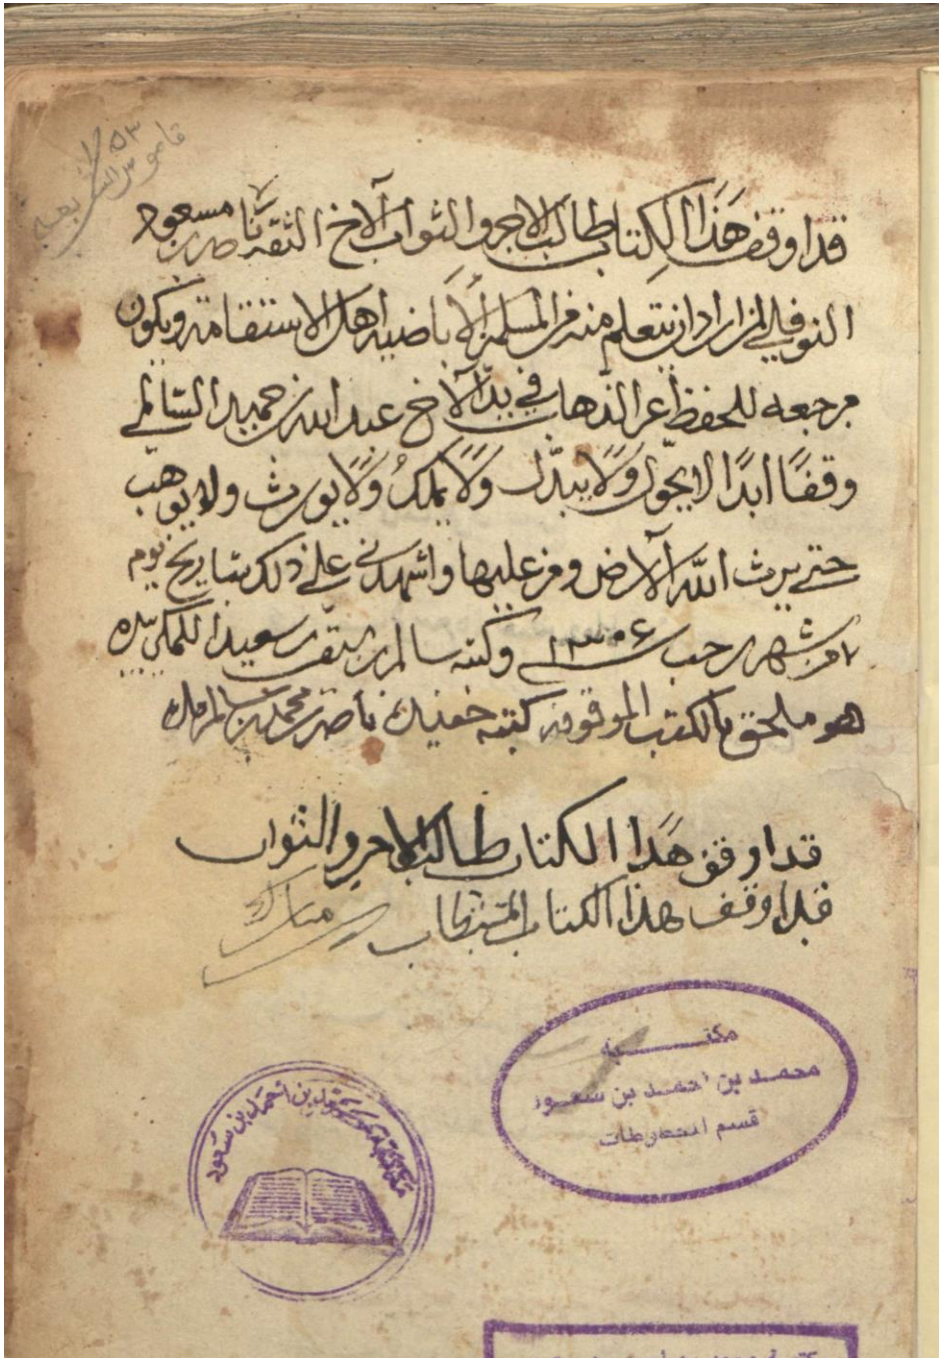 قاموس الشريعة
قد اوقف هَذا الكِتاب طالب الاجر والثواب الآخ الثقة ناصر بن مسعود
النوفلي لمن اراد ان يتعلم منه من المسلمين الأباضيه اهل الاستقامة ويكون
مرجعه للحفظ عن الذهاب في يد الآخ عبد الله بن حميد السالمي
وقفًا ابدًا لا يحول وَلا يبدّل وَلَا يملكُ وَلَا يورث ولا يوهب
حتى يرث الله الآرض ومن عليها واشهدني على ذلك بتاريخ يوم
من شهر رجب سنة ١٣٠٦ وكتبه سالم بن سعيد بيده
هو ملحق بالكتب الموقوفه كتبه ناصر بن محمد بن سالم
قد اوقف هَذا الكتاب طالب الاجر والثواب
قد اوقف هذا الكتاب المستطاب
مكتبة
محمد بن احمد بن سعود
قسم المخطوطات
بن احمد بن سعود